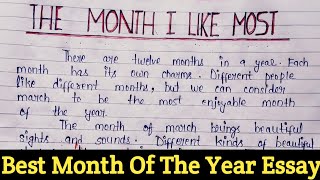 THE MONTH I LIKE MOST
There are twelve months in a year. Each
month has its own charms. Different people
like different months, but we can consider
march to be the most enjoyable month
of the year.
The month of march brings beautiful
sights and sounds. Different kinds of beautiful
Best Month Of The Year Essay